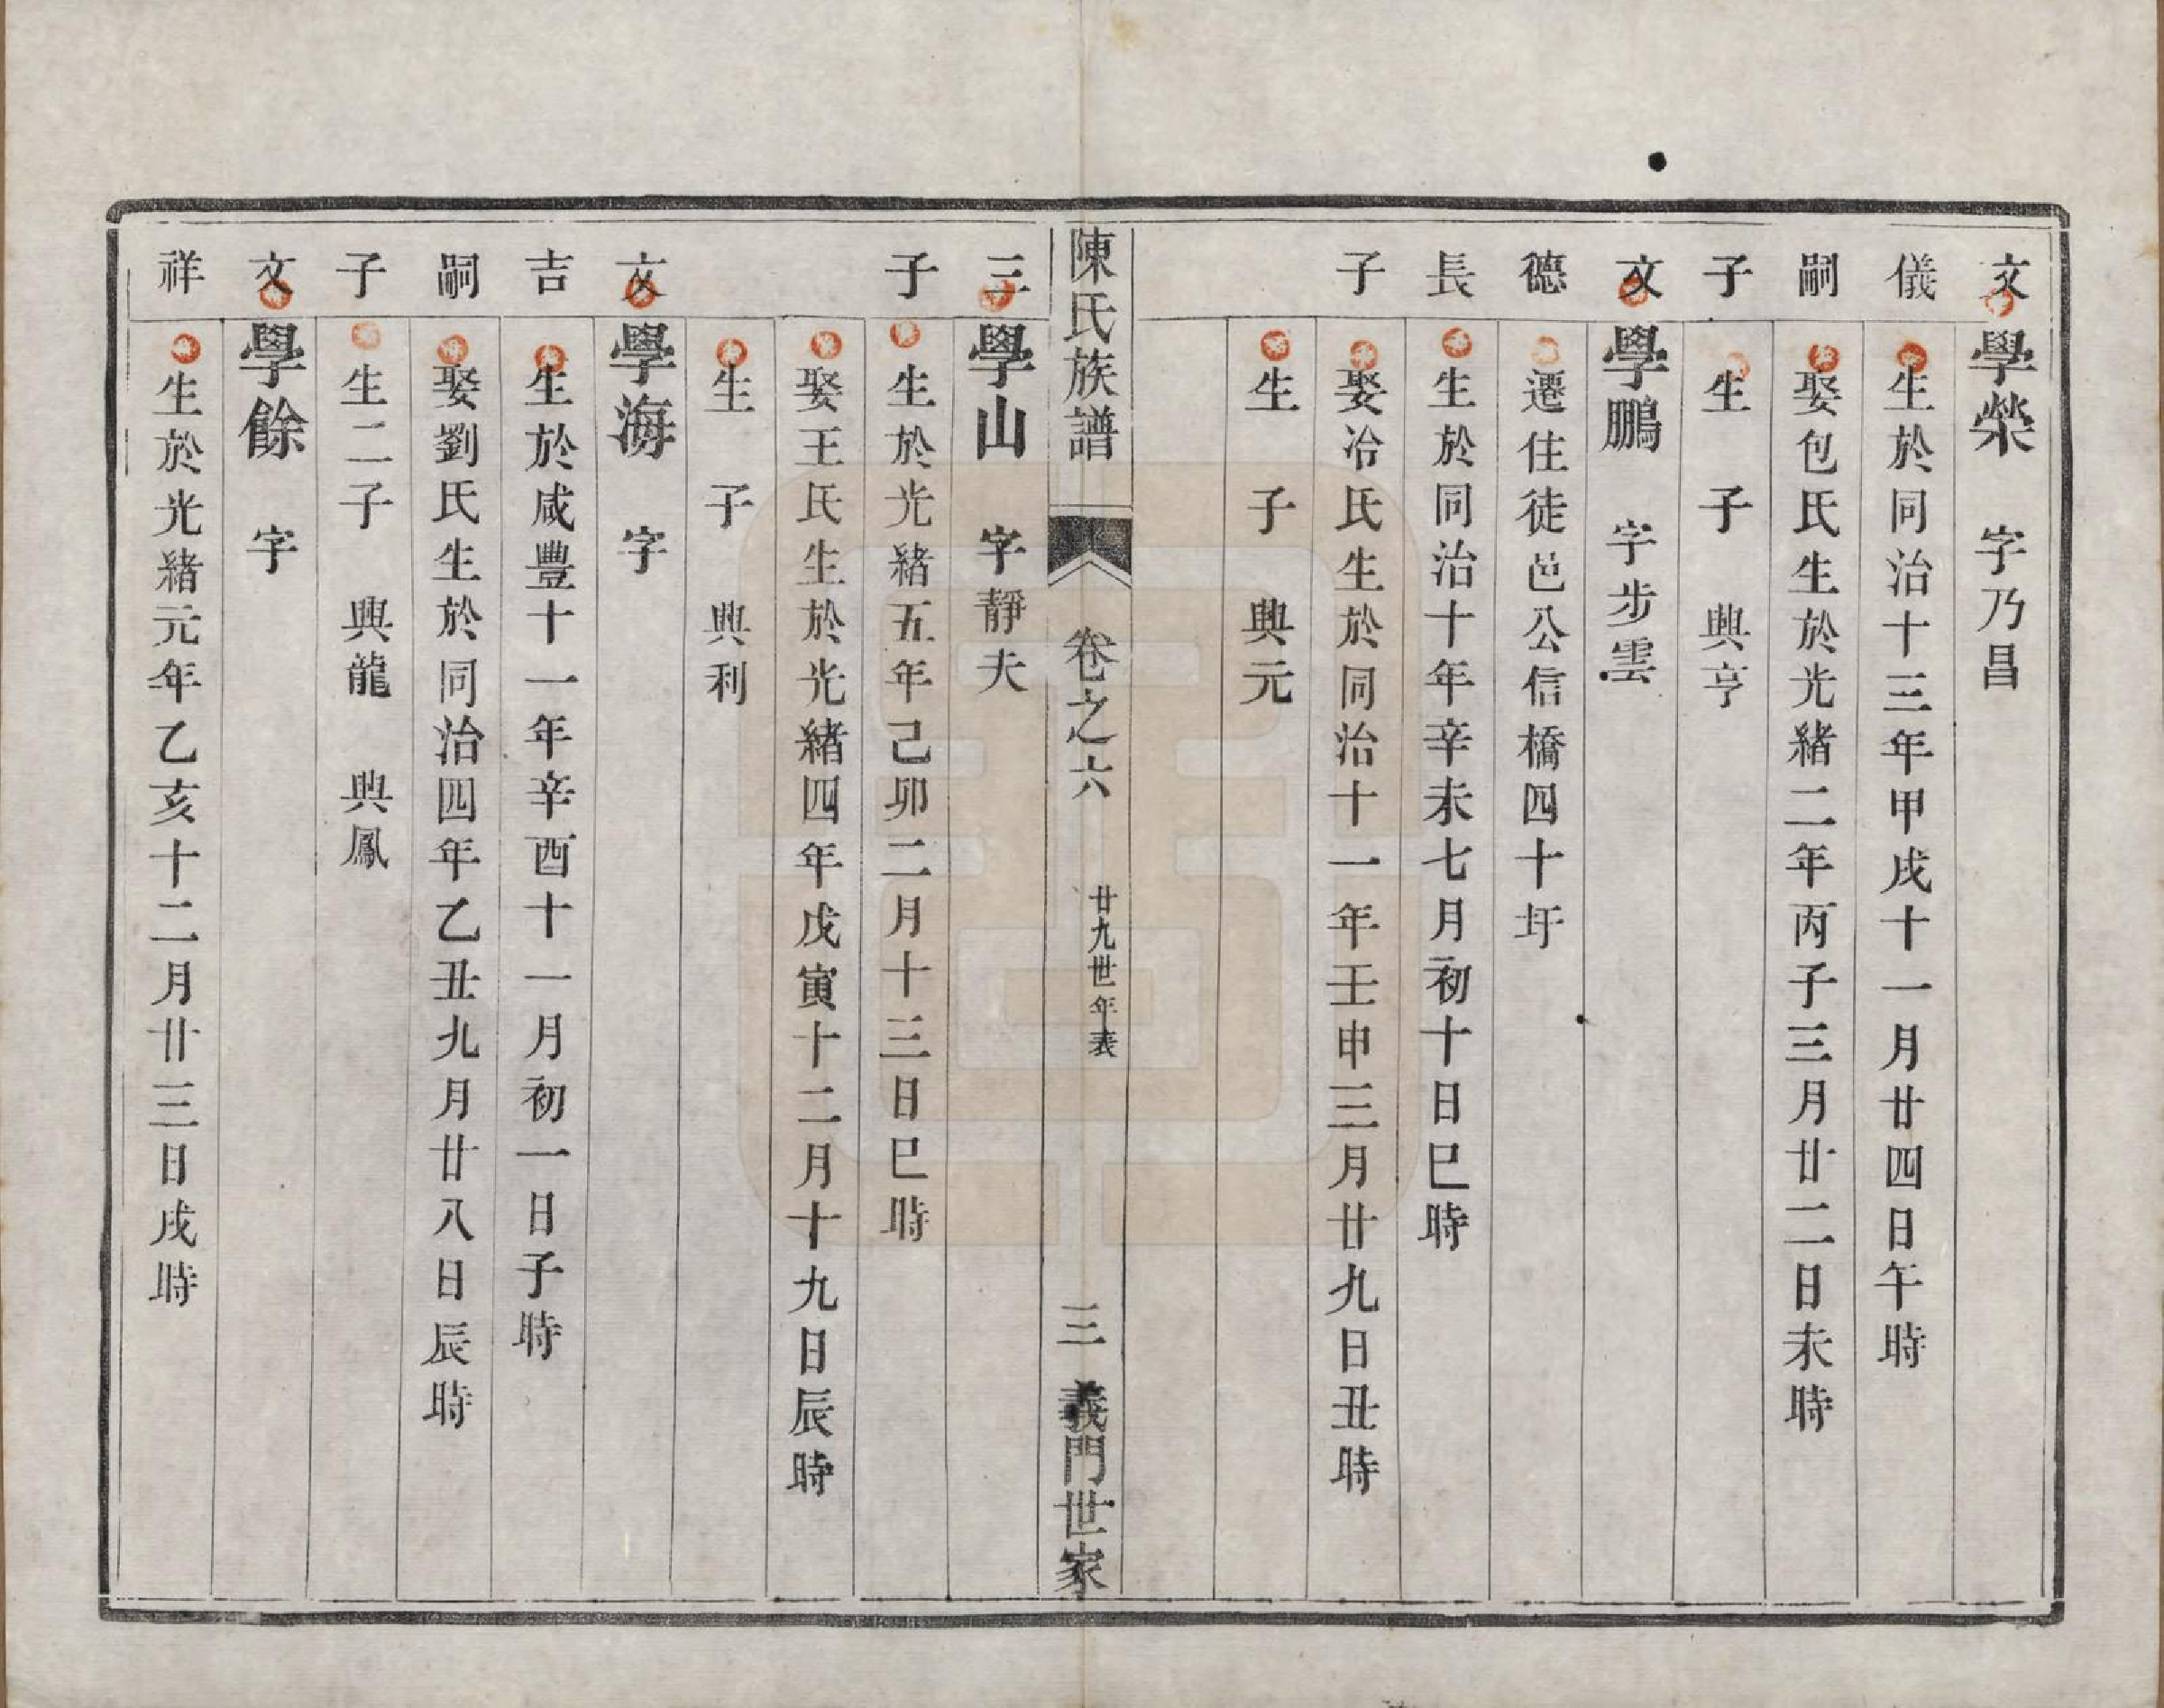 文 學榮 字乃昌
儀 生於同治十三年甲戌十一月廿四日午時
嗣 娶包氏生於光緒二年丙子三月廿二日未時
子 生 子 興亨
文 學鵬 字步雲
德 遷住徒邑公信橋四十圩
長 生於同治十年辛未七月初十日巳時
子 娶冷氏生於同治十一年壬申三月廿九日丑時
生 子 興元
陳氏族譜 卷之六 廿九世年表 三 義門世家
三 學山 字靜夫
子 生於光緒五年己卯二月十三日巳時
娶王氏生於光緒四年戊寅十二月十九日辰時
生 子 興利
文 學海 字
吉 生於咸豐十一年辛酉十一月初一日子時
嗣 娶劉氏生於同治四年乙丑九月廿八日辰時
子 生二子 興龍 興鳳
文 學餘 字
祥 生於光緒元年乙亥十二月廿三日戌時